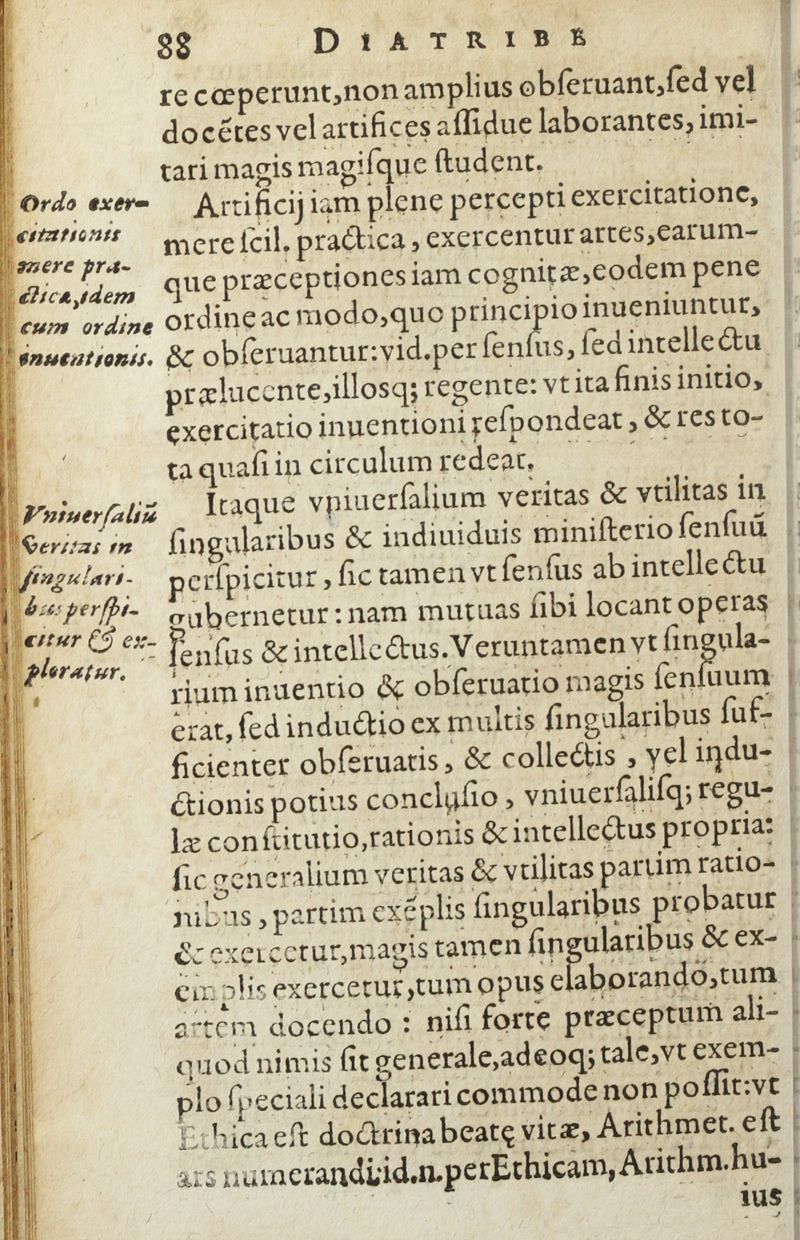 88 DIATRIBE
re cœperunt,non amplius obſeruant,ſed vel
docẽtes vel artifices aſſidue laborantes, imi-
tari magis magiſque ſtudent.
Ordo exer-
citationis
mere pra-
ctica,idem
cum ordine
inuentionis.
Artificij iam plene percepti exercitatione,
mere ſcil. practica, exercentur artes,earum-
que præceptiones iam cognitæ,eodem pene
ordine ac modo,quo principio inueniuntur,
& obſeruantur:vid.per ſenſus, ſed intellectu
prælucente,illosq; regente: vt ita finis initio,
exercitatio inuentioni reſpondeat, & res to-
ta quaſi in circulum redeat.
Vniuerſaliũ
veritas in
ſingulari-
bus perſpi-
citur & ex-
ploratur.
Itaque vniuerſalium veritas & vtilitas in
ſingularibus & indiuiduis miniſterio ſenſuũ
perſpicitur, ſic tamen vt ſenſus ab intellectu
gubernetur: nam mutuas ſibi locant operas
ſenſus & intellectus. Veruntamen vt ſingula-
rium inuentio & obſeruatio magis ſenſuum
erat, ſed inductio ex multis ſingularibus ſuf-
ficienter obſeruatis, & collectis, vel indu-
ctionis potius concluſio, vniuerſaliſq; regu-
læ conſtitutio,rationis & intellectus propria:
ſic generalium veritas & vtilitas partim ratio-
nibus, partim exẽplis ſingularibus probatur
& exercetur,magis tamen ſingularibus & ex-
emplis exercetur,tum opus elaborando,tum
artem docendo : niſi forte præceptum ali-
quod nimis ſit generale,adeoq; tale,vt exem-
plo ſpeciali declarari commode non poſſit:vt
Ethica eſt doctrina beatę vitæ, Arithmet. eſt
ars numerandi:id.n.per Ethicam, Arithm.hu-
ius